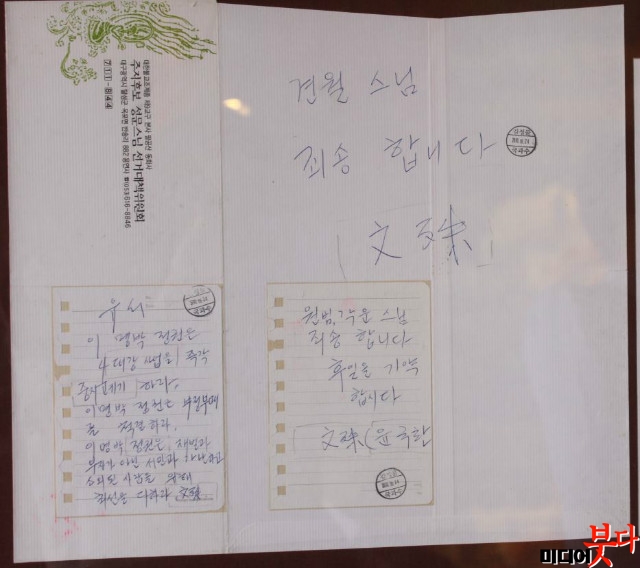 대한불교조계종 제9교구 본사 팔공산 동화사
주지후보 성문스님 선거대책위원회
대구광역시 달성군 옥포면 반송리 882 용연사 ☎(053)616-8846
711-844
견월 스님
죄송 합니다
(文殊)
유서
이명박 정권은
4대강 사업을 즉각
중지 폐기 하라.
이명박 정권은 부정부패
를 척결하라.
이명박 정권은, 재벌과
부자가 아닌 서민과 가난하고
소외된 사람을 위해
최선을 다하라 文殊
원범, 각운 스님
죄송 합니다
후일을 기약
합니다
文殊(윤국환
미디어붓다